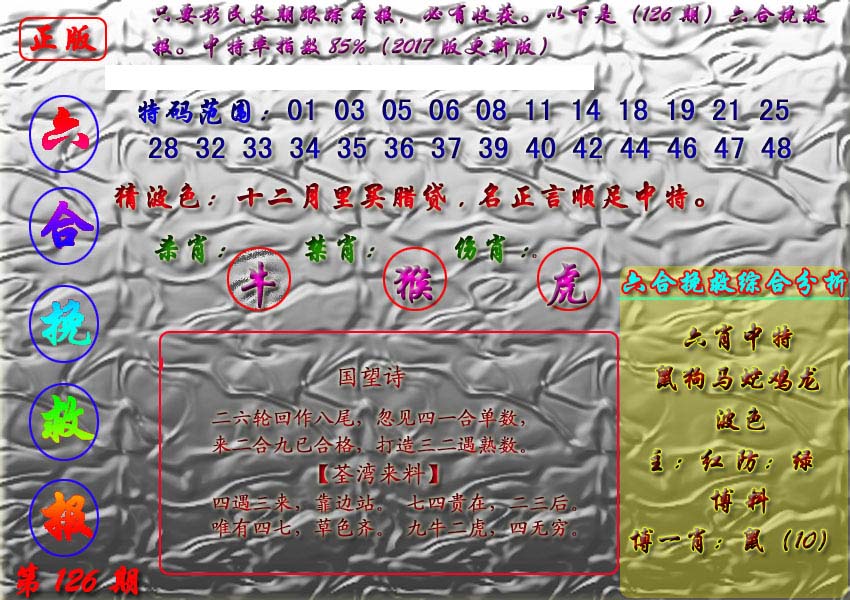 正版
只要彩民长期跟踪本报，必有收获。以下是（126期）六合挽救
报。中特率指数85%（2017版更新版）
六合挽救报
第126期
特码范围：01 03 05 06 08 11 14 18 19 21 25
28 32 33 34 35 36 37 39 40 42 44 46 47 48
猜波色：十二月里买腊贷．名正言顺足中特。
杀肖：牛 禁肖：猴 伤肖：。虎
国望诗
二六轮回作八尾，忽见四一合单数，
来二合九已合格，打造三二遇熟数。
【荃湾来料】
四遇三来，靠边站。 七四贵在，二三后。
唯有四七，草色齐。 九牛二虎，四无穷。
六合挽救综合分析
六肖中特
鼠狗马蛇鸡龙
波色
主：红防：绿
博料
博一肖：鼠（10）